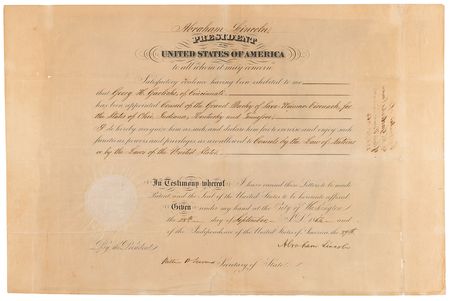 Abraham Lincoln,
PRESIDENT
UNITED STATES OF AMERICA
to all whom it may concern
Satisfactory evidence having been exhibited to me
that Georg H. Garlichs, of Cincinnati
has been appointed Consul of the Grand Duchy of Saxe Weimar Eisenach, for
the States of Ohio, Indiana, Kentucky and
I do hereby recognize him as such, and declare him free to exercise and enjoy such
functions powers and privileges as are allowed to Consuls by the Law of Nations
or by the Laws of the United States
In Testimony whereof I have caused these Letters to be made
Patent and the Seal of the United States to be hereunto affixed
Given under my hand at the City of Washington
the day of September A.D. and
of the Independence of the United States of America, the
Abraham Lincoln
By the President
Secretary of State